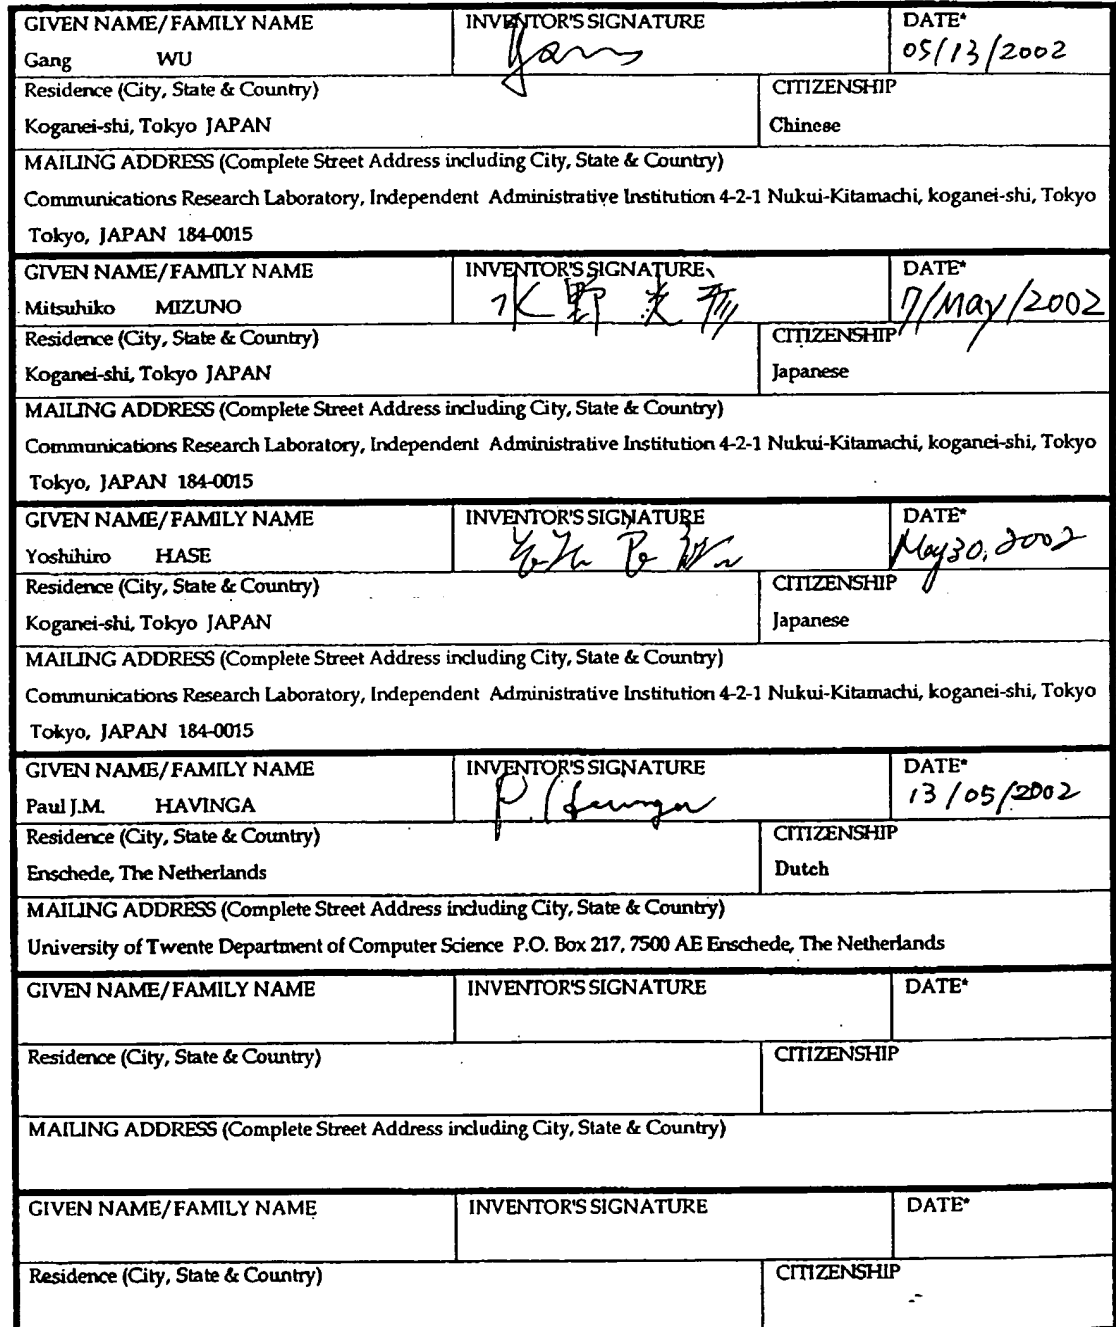 GIVEN NAME/FAMILY NAME INVENTOR'S SIGNATURE DATE*
Gang WU Gang 05/13/2002
Residence (City, State & Country) CITIZENSHIP
Koganei-shi, Tokyo JAPAN Chinese
MAILING ADDRESS (Complete Street Address including City, State & Country)
Communications Research Laboratory, Independent Administrative Institution 4-2-1 Nukui-Kitamachi, koganei-shi, Tokyo
Tokyo, JAPAN 184-0015
GIVEN NAME/FAMILY NAME INVENTOR'S SIGNATURE DATE*
Mitsuhiko MIZUNO 水野 7/May/2002
Residence (City, State & Country) CITIZENSHIP
Koganei-shi, Tokyo JAPAN Japanese
MAILING ADDRESS (Complete Street Address including City, State & Country)
Communications Research Laboratory, Independent Administrative Institution 4-2-1 Nukui-Kitamachi, koganei-shi, Tokyo
Tokyo, JAPAN 184-0015
GIVEN NAME/FAMILY NAME INVENTOR'S SIGNATURE DATE*
Yoshihiro HASE May 30, 2002
Residence (City, State & Country) CITIZENSHIP
Koganei-shi, Tokyo JAPAN Japanese
MAILING ADDRESS (Complete Street Address including City, State & Country)
Communications Research Laboratory, Independent Administrative Institution 4-2-1 Nukui-Kitamachi, koganei-shi, Tokyo
Tokyo, JAPAN 184-0015
GIVEN NAME/FAMILY NAME INVENTOR'S SIGNATURE DATE*
Paul J.M. HAVINGA P. Havinga 13/05/2002
Residence (City, State & Country) CITIZENSHIP
Enschede, The Netherlands Dutch
MAILING ADDRESS (Complete Street Address including City, State & Country)
University of Twente Department of Computer Science P.O. Box 217, 7500 AE Enschede, The Netherlands
GIVEN NAME/FAMILY NAME INVENTOR'S SIGNATURE DATE*
Residence (City, State & Country) CITIZENSHIP
MAILING ADDRESS (Complete Street Address including City, State & Country)
GIVEN NAME/FAMILY NAME INVENTOR'S SIGNATURE DATE*
Residence (City, State & Country) CITIZENSHIP